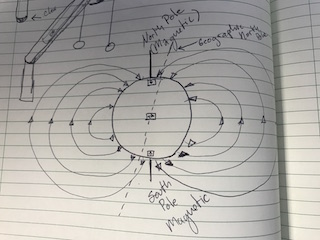 North Pole
(Magnetic)
Geographic North
Pole
South
Pole
Magnetic